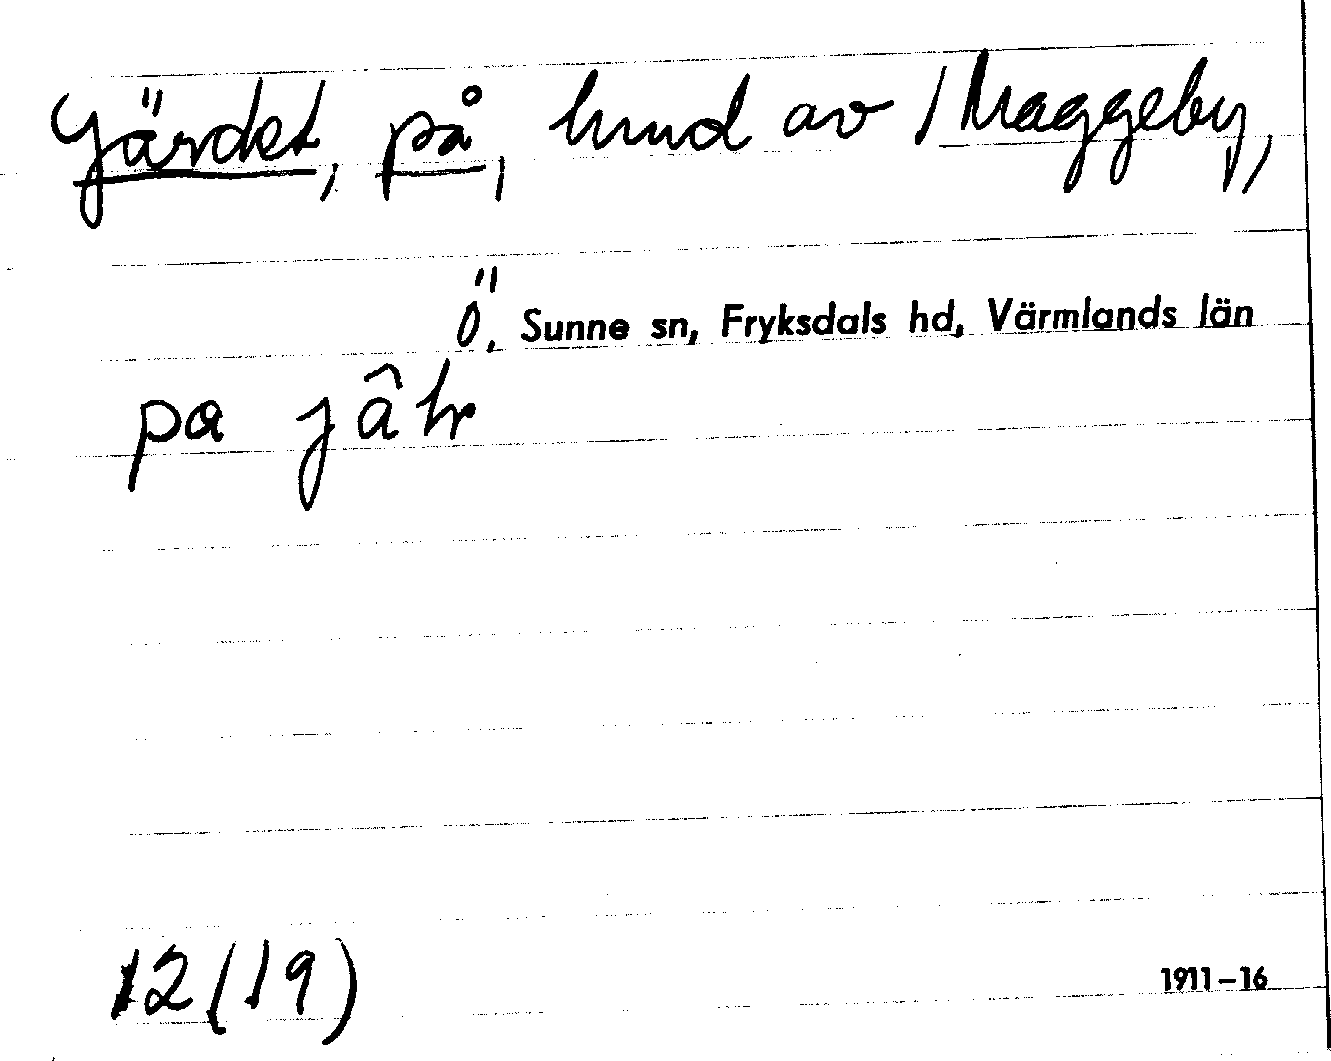 Gärdet, på, hmd av Maggeby,
Ö, Sunne sn, Fryksdals hd, Värmlands län
pa jâhr
12 (19)
1911–16